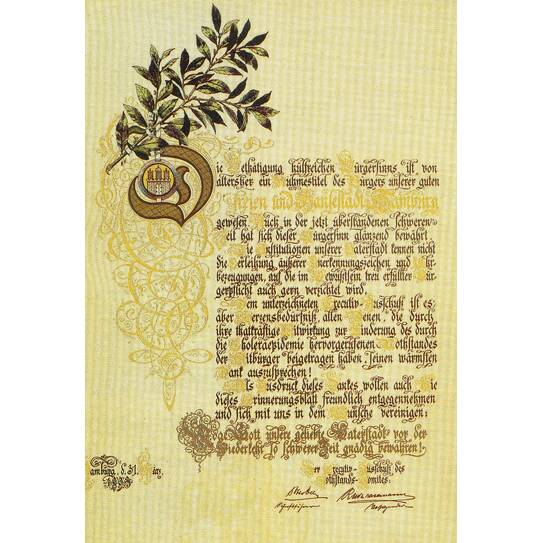 Die Bethätigung hülfreichen Bürgersinns ist von
altersher ein Ruhmestitel des Bürgers unserer guten
Freien und Hansestadt Hamburg
gewesen. Auch in der jetzt überstandenen schweren
Zeit hat sich dieser Bürgersinn glänzend bewährt.
Die Institutionen unserer Vaterstadt kennen nicht
die Verleihung äußerer Anerkennungszeichen und Ehr-
bezeugungen, auf die im Bewußtsein treu erfüllter Bür-
gerpflicht auch gern verzichtet wird.
Dem unterzeichneten Executiv-Ausschuß ist es
aber Herzensbedürfniß, allen Denen, die durch
ihre thatkräftige Mitwirkung zur Linderung des durch
die Choleraepidemie hervorgerufenen Nothstandes
der Mitbürger beigetragen haben, seinen wärmsten
Dank auszusprechen!
Als Ausdruck dieses Dankes wollen auch Sie
dieses Erinnerungsblatt freundlich entgegennehmen
und sich mit uns in dem Wunsche vereinigen:
Mögʼ Gott unsere geliebte Vaterstadt vor der
Wiederkehr so schwerer Zeit gnädig bewahren!
Hamburg, d. 31. März
1893
Der Executiv-Ausschuß des
Nothstands-Comités.